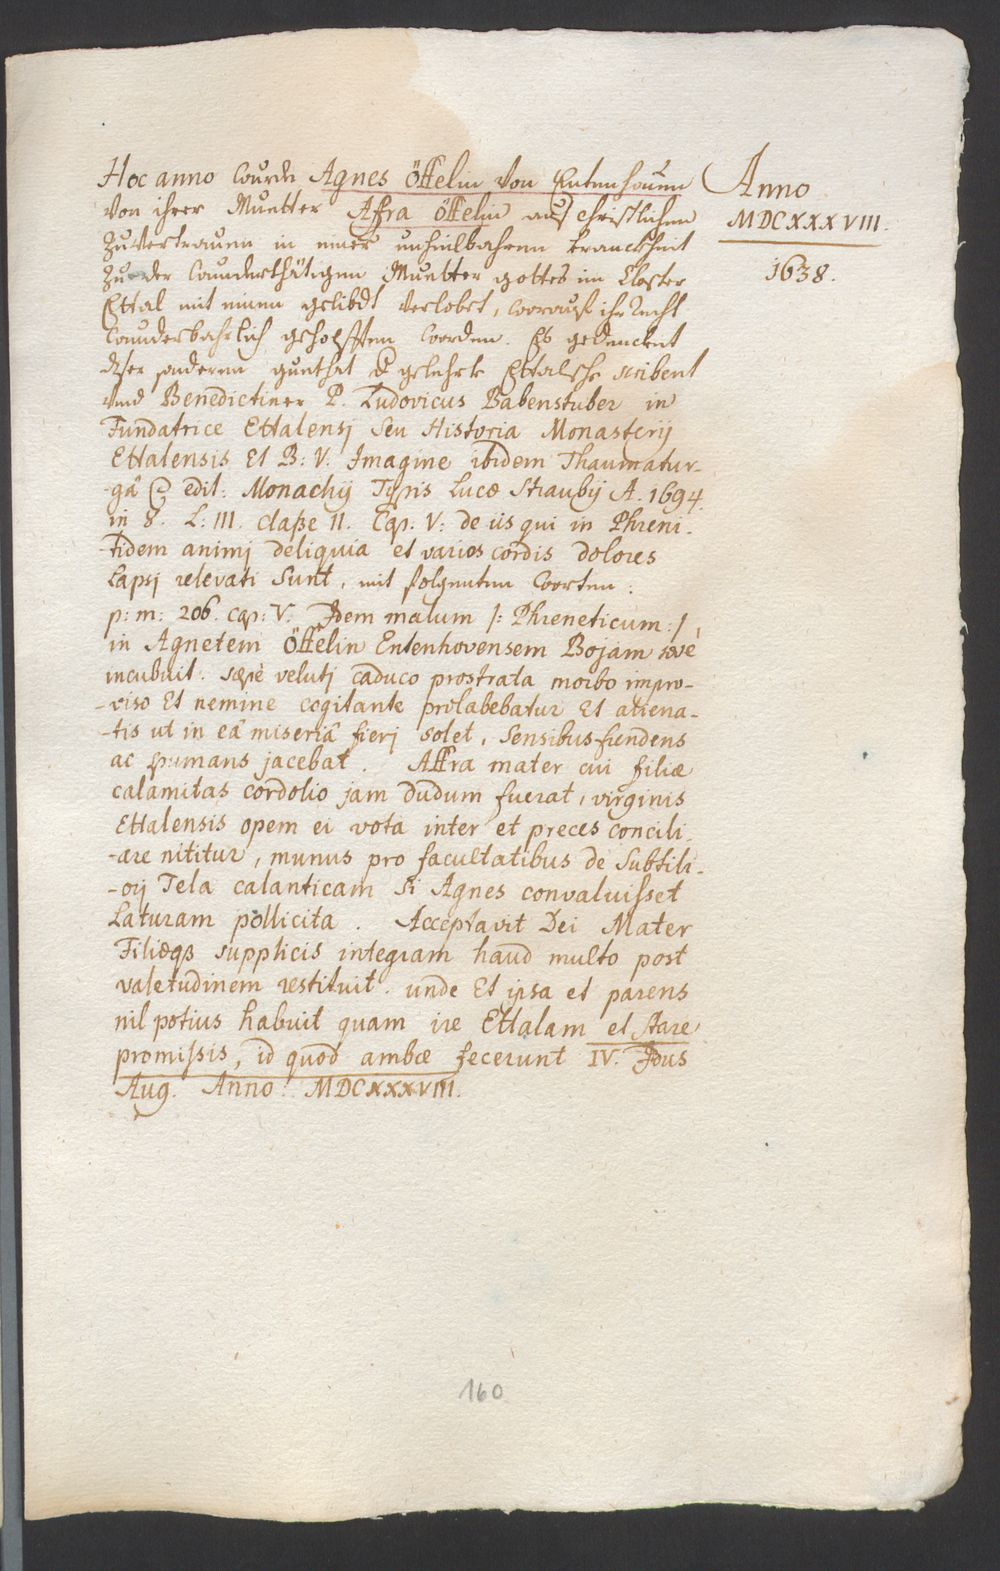 Hoc anno wurde Agnes Öffelin von Entenhouen
von ihrer Muetter Afra Öffelin auß christlichen
zuvertrauen in einer unheilbahren kranckheit
zu der wunderthätigen Muetter gottes im Closter
Ettal mit einem gelibdt verlobet, worauf ihr recht
wunderbahrlich geholffen worden. Es gedencket
diser sonderen guethat d gelehrte Ettalische scribent
und Benedictiner P. Ludovicus Babenstuber in
Fundatrice Ettalensj Seu Historia Monasterij
Ettalensis Et B: V. Imagine ibidem Thaumatur-
-gâ edit: Monachij Typis Lucæ Straubij A. 1694.
in 8. L: III. claße II. Cap. V: de iis qui in Phreni-
-tidem animj deliquia et varios cordis dolores
Lapsj relevati Sunt, mit folgenten worten:
p: m: 206. cap: V. Idem malum /: Phreneticum :/
in Agnetem Öffelin Entenhovensem Bojam
incubuit. sæpè velutj caduco prostrata morbo impro-
-viso Et nemine cogitante prolabebatur Et aliena-
-tis ut in eâ miseriâ fierj solet, Sensibus frendens
ac spumans jacebat. Affra mater cui filiæ
calamitas cordolio jam dudum fuerat, virginis
Ettalensis opem ei vota inter et preces concili-
-are nititur, munus pro facultatibus de Subtili-
-orj Tela calanticam Si Agnes convaluisset
Laturam pollicita. Acceptavit Dei Mater
Filiæqß supplicis integram haud multo post
valetudinem restituit. unde Et ipsa et parens
nil potius habuit quam ire Ettalam et stare
promissis, id quod ambæ fecerunt IV. Idus
Aug. Anno MDCXXXVIII.
Anno
MDCXXXVIII.
1638.
160